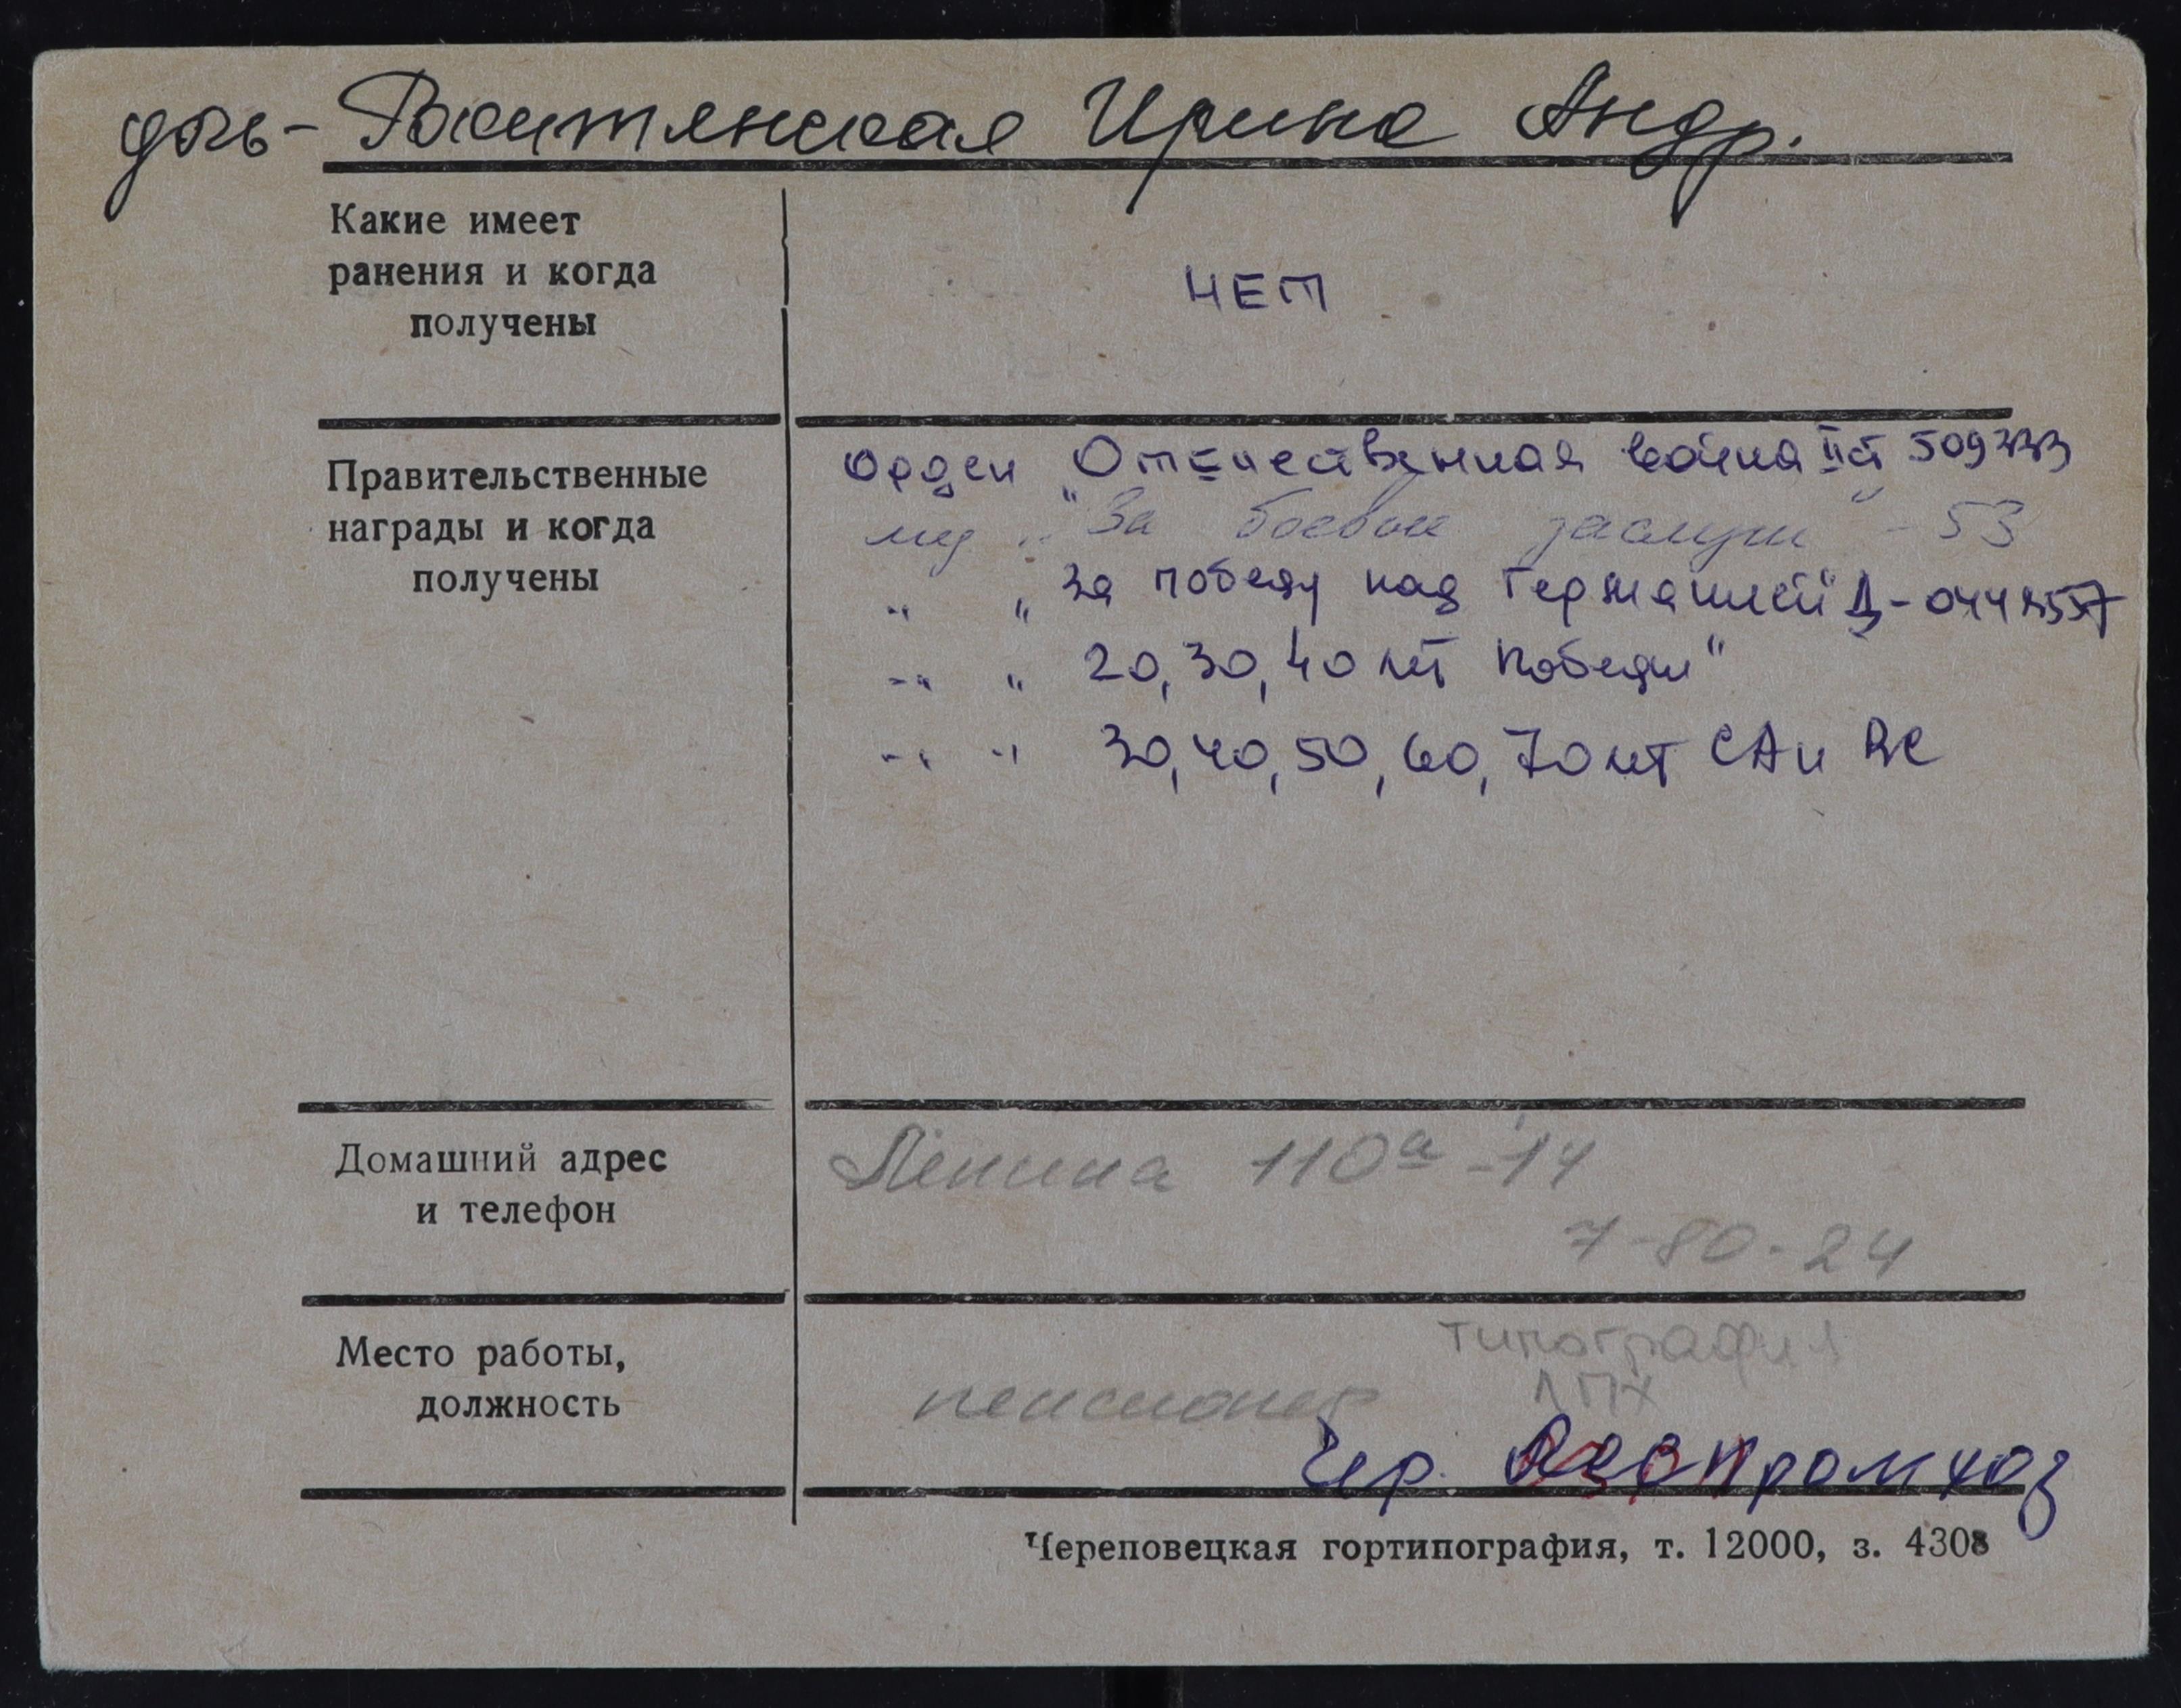 дочь - Ирина Андр.
Какие имеет
ранения и когда
получены
НЕТ
Правительственные
награды и когда
получены
Орден "Отечественная война II ст 509333
мед " "За боевые заслуги" - 53
" " За победу над Германией" Д - 0448557
-" " 20, 30, 40 лет Победы"
-" -" 30, 40, 50, 60, 70 лет СА и ВС
Домашний адрес
и телефон
Ленина 110а - 14
7-80-24
Место работы,
должность
типография
пенсионер ЛПХ
Чер.
Череповецкая гортипография, т. 12000, з. 4308